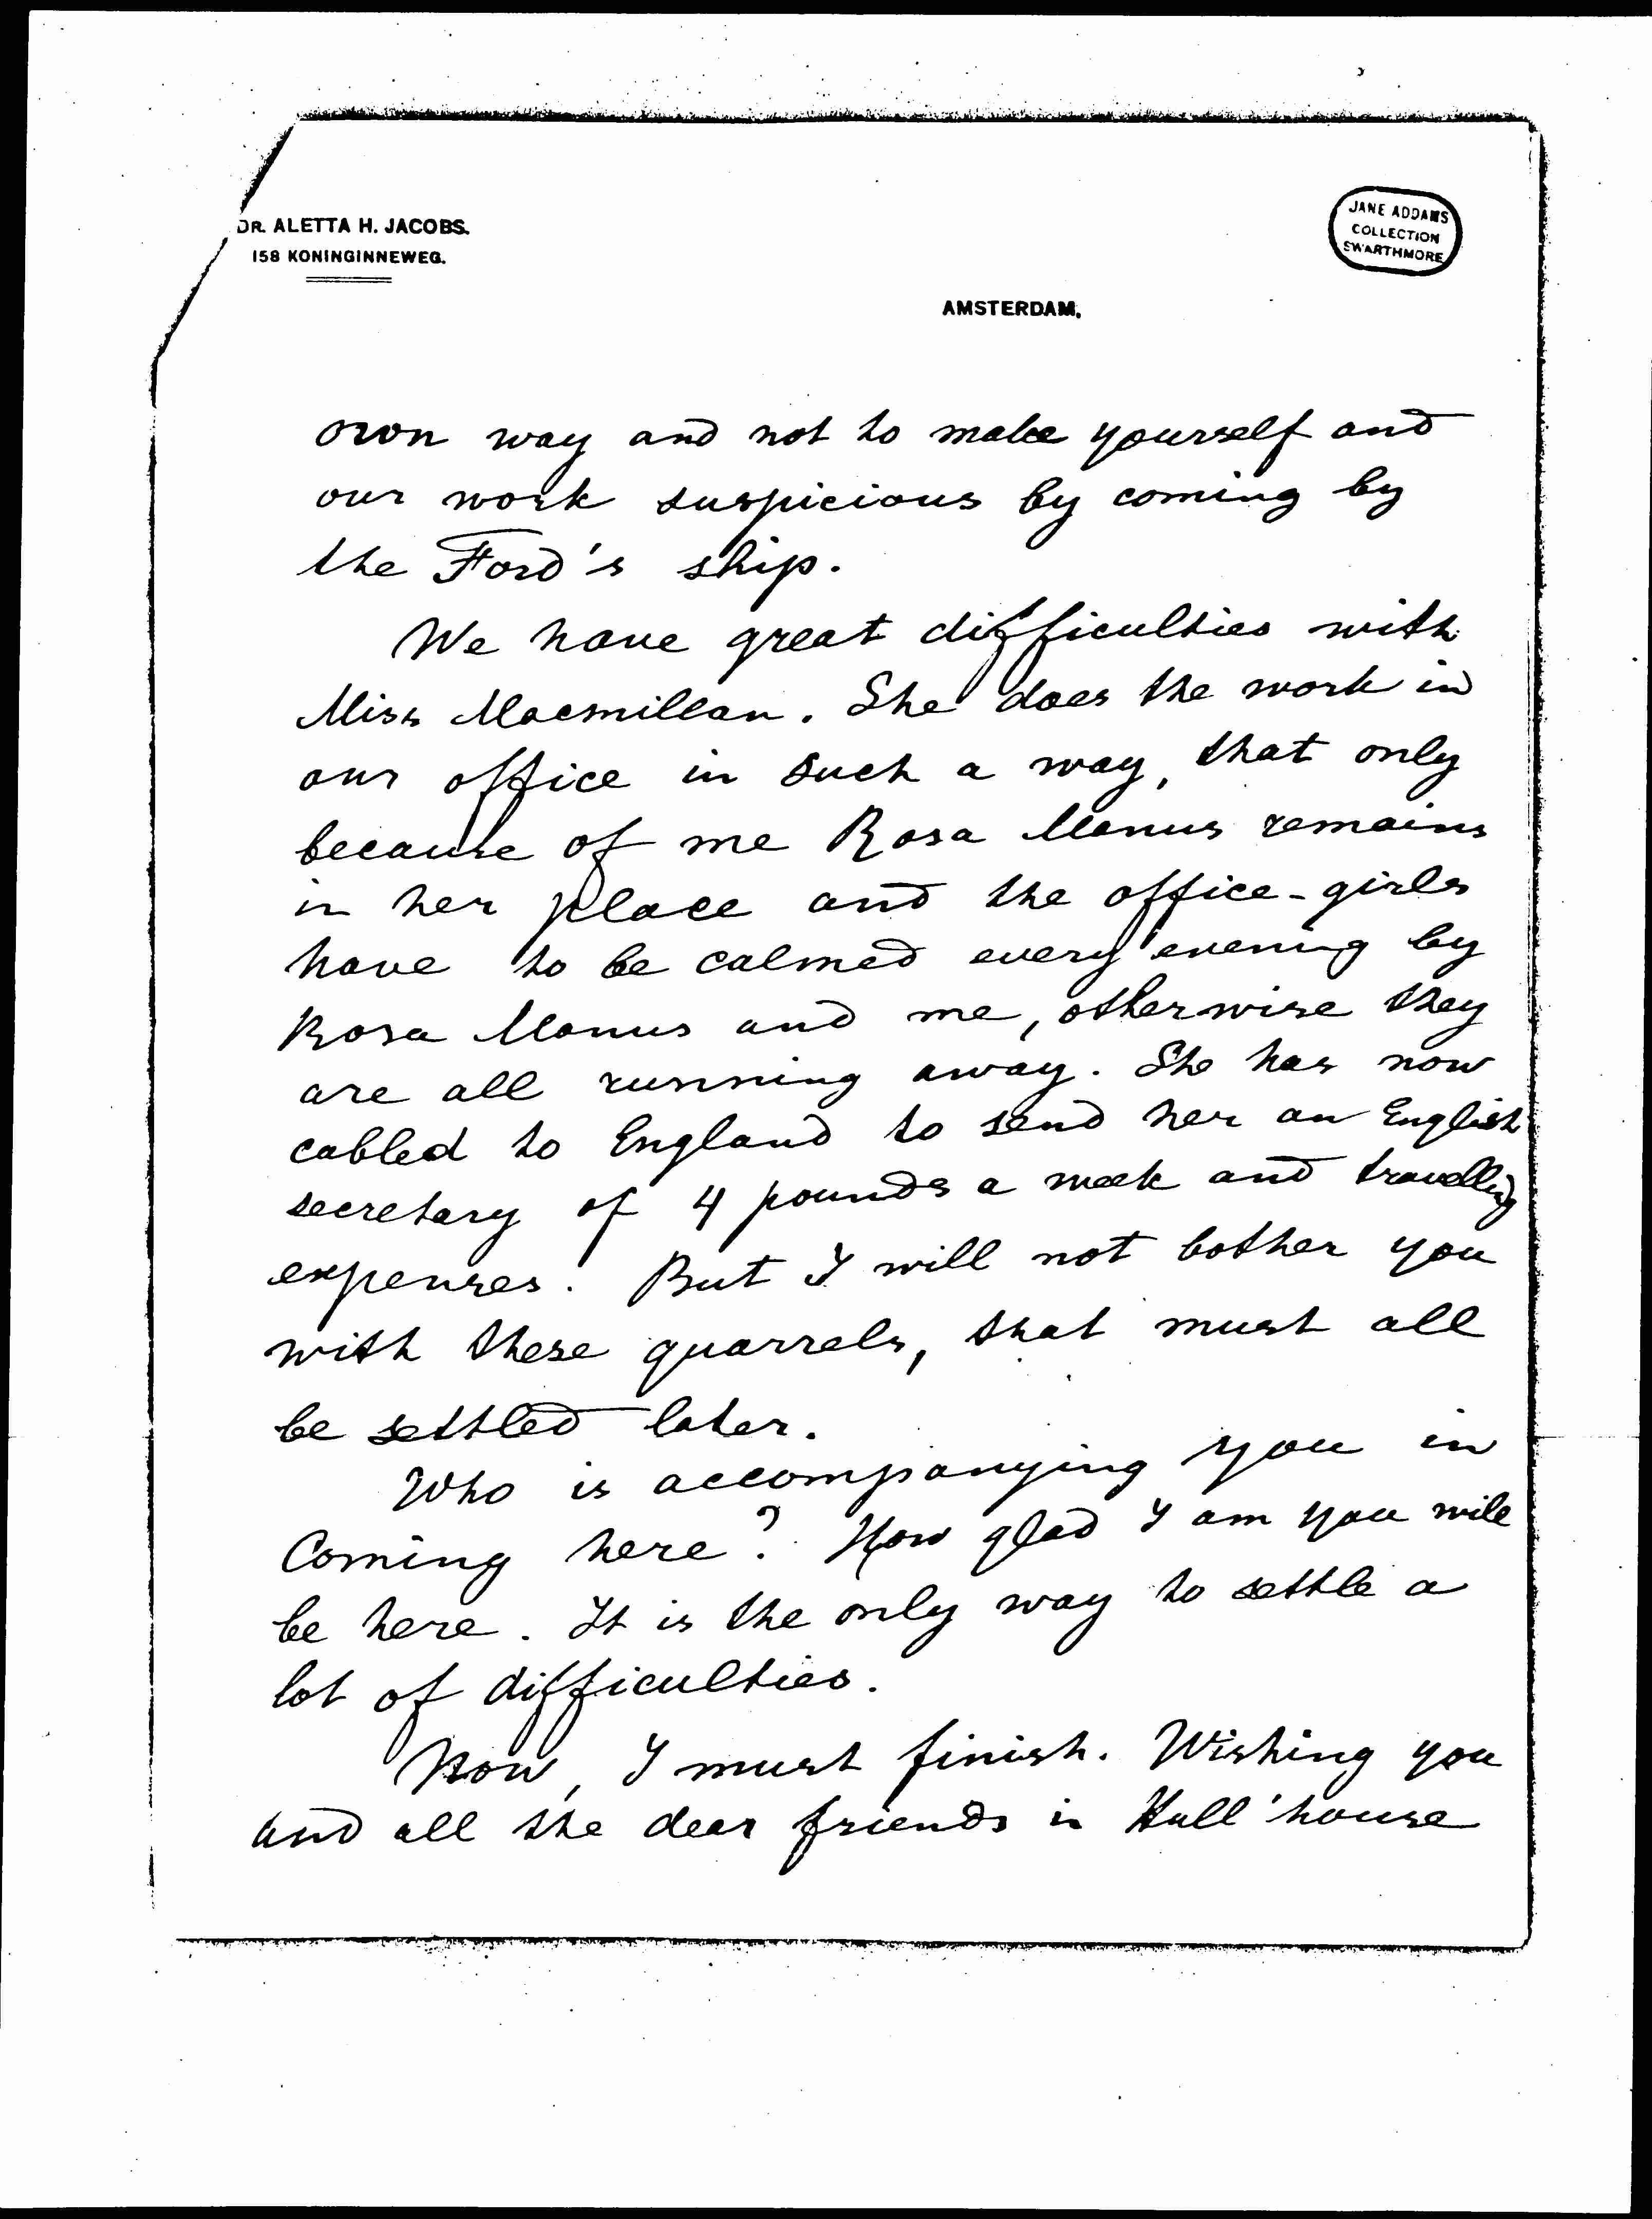 DR. ALETTA H. JACOBS.
158 KONINGINNEWEG.
JANE ADDAMS
COLLECTION
SWARTHMORE
AMSTERDAM,
own way and not to make yourself and
our work suspicious by coming by
the Ford's ship.
We have great difficulties with
Miss Macmillan. She does the work in
our office in such a way, that only
because of me Rosa Manus remains
in her place and the office-girls
have to be calmed every evening by
Rosa Manus and me, otherwise they
are all running away. She has now
cabled to England to send her an English
secretary of 4 pounds a week and travelling
expenses. But I will not bother you
with these quarrels, that must all
be settled later.
Who is accompanying you in
Coming here? How glad I am you will
be here. It is the only way to settle a
lot of difficulties.
Now, I must finish. Wishing you
and all the dear friends in Hull'house